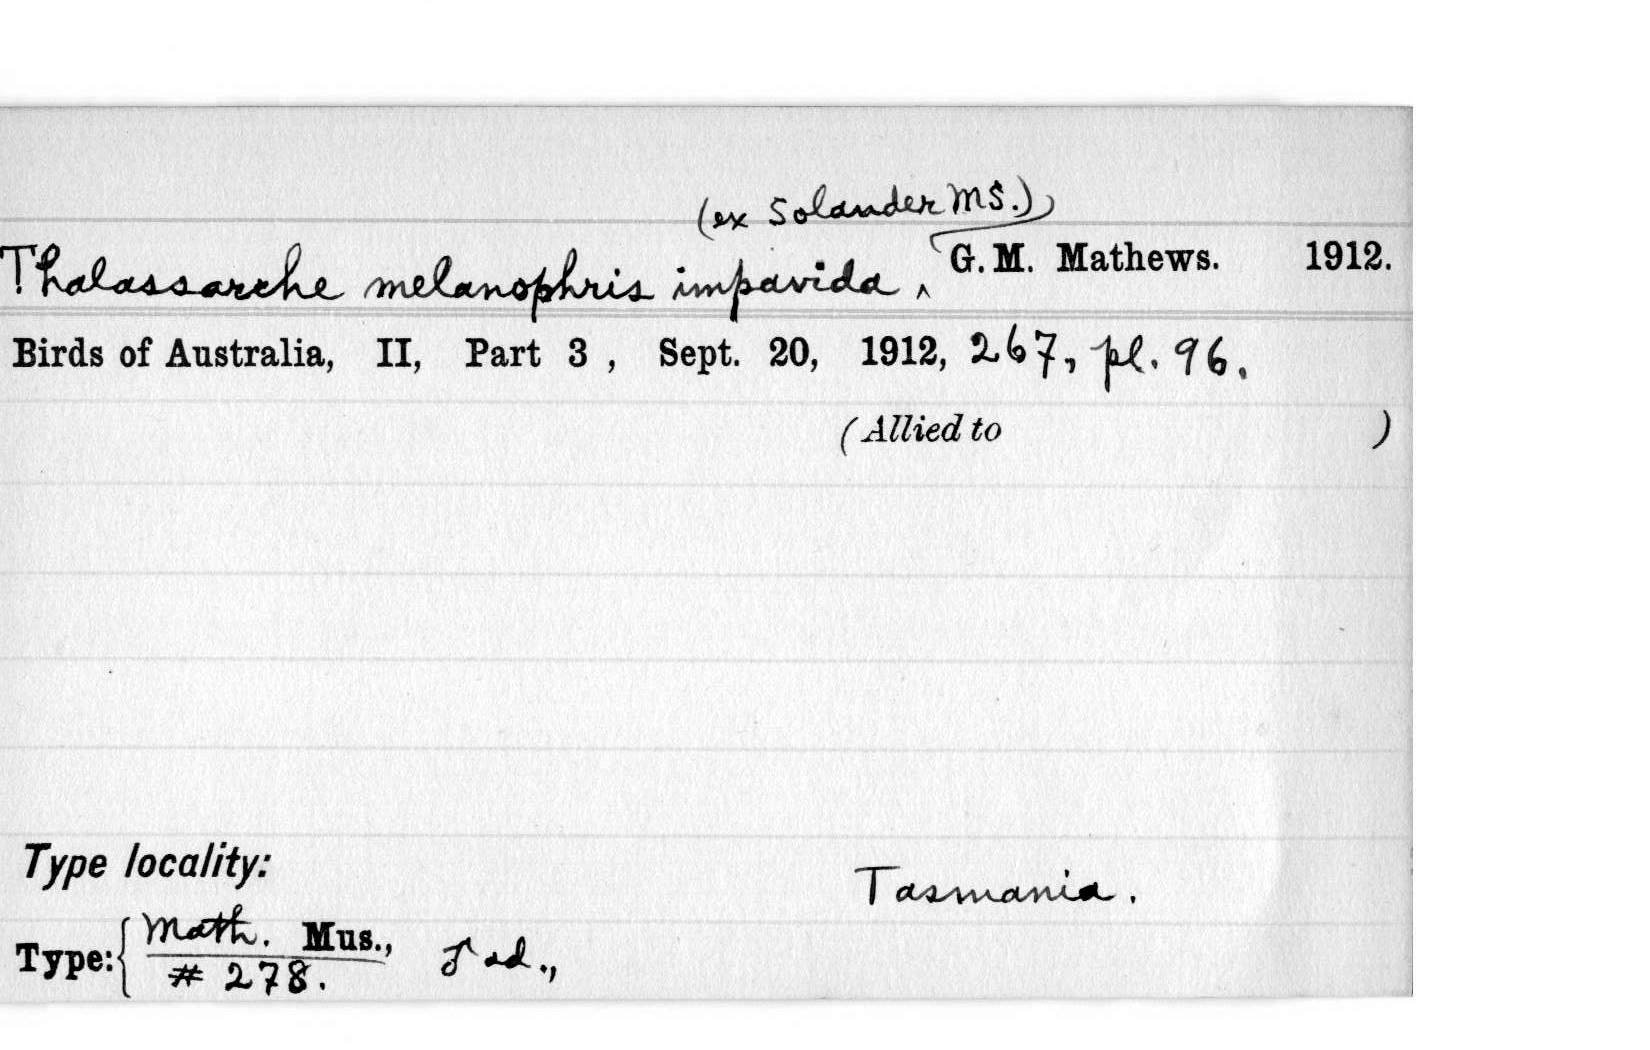 (ex Solander MS.)
Thalassarche melanophris impavida, ^ G. M. Mathews. 1912.
Birds of Australia, II, Part 3, Sept. 20, 1912, 267, pl. 96.
(Allied to )
Type locality: Tasmania.
Type: { Math. Mus., ♂ ad.,
# 278.